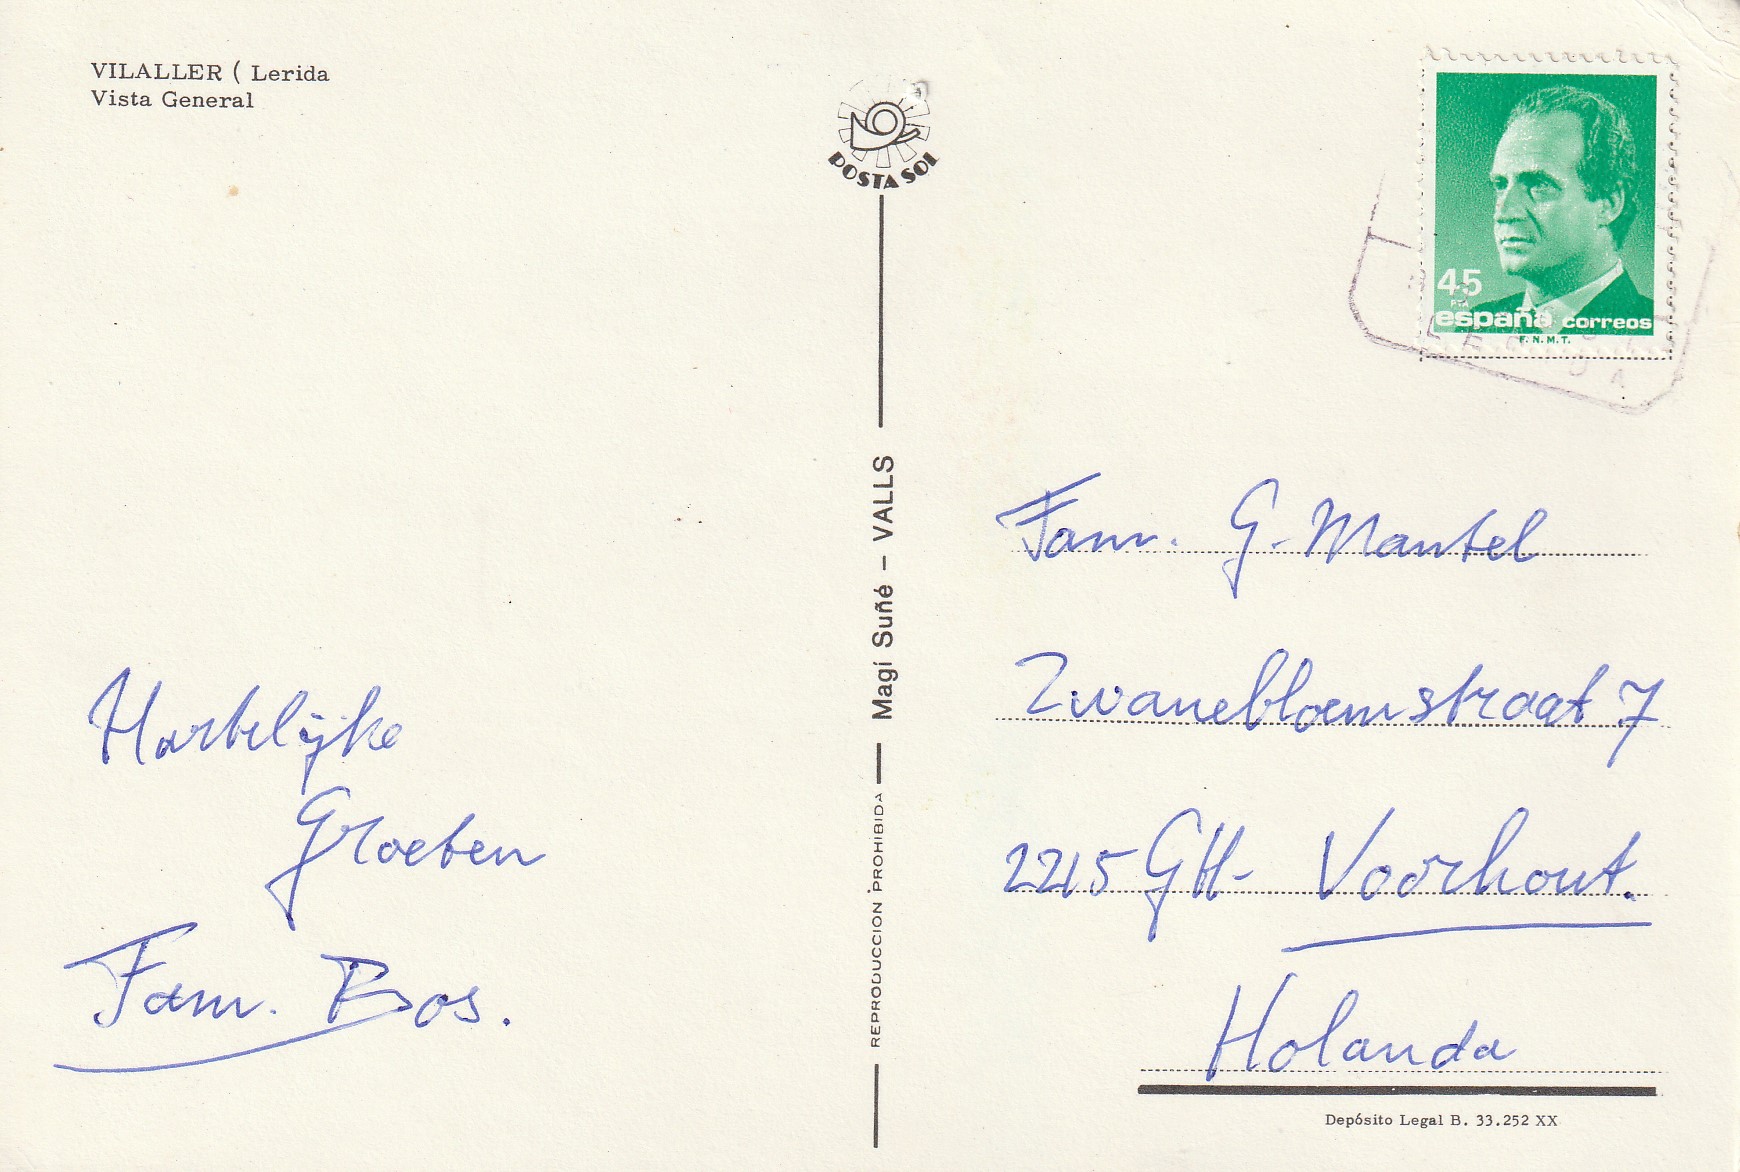 VILALLER ( Lerida
Vista General
POSTA SOL
45
PTA
españa correos
F.N.M.T.
Hartelijke
Groeten
Fam. Bos.
REPRODUCCION PROHIBIDA
Magí Suñé – VALLS
Fam. G. Mantel
Zwanebloemstraat 7
2215 GH- Voorhout.
Holanda
Depósito Legal B. 33.252 XX